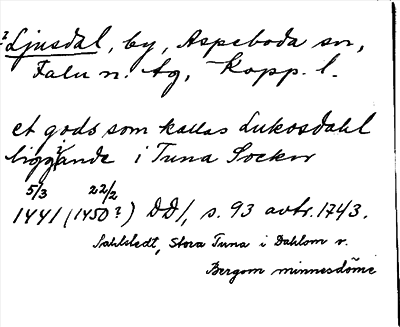 2 Ljusdal, by, Aspeboda sn,
Falu n. tg, Kopp. l.
et gods som kallas Lukosdahl
liggande i Tuna Sockn
5/3 22/2
1441 (1450?) DD1, s. 93 avtr. 1743.
Sahlstedt, Stora Tuna i Dahlom v.
Bergom minnesdöme